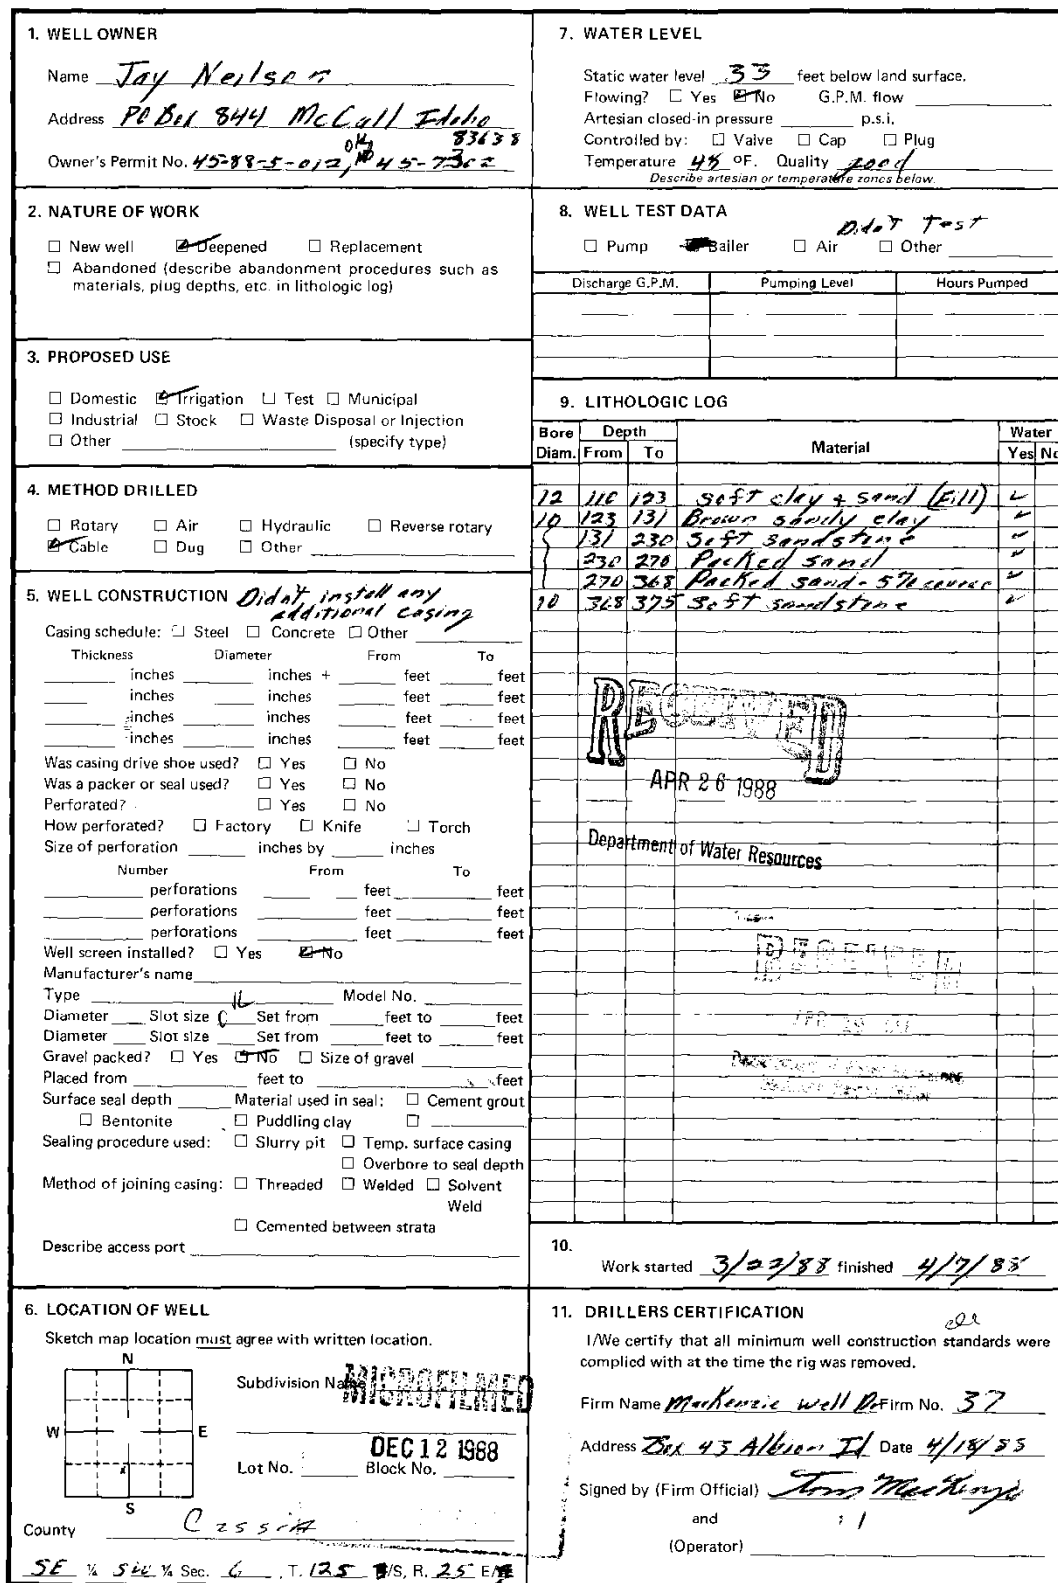 1. WELL OWNER
Name Jay Neilson
Address PO Box 844 McCall Idaho
83638
Owner's Permit No. 45-88-5-012, 45-7302
2. NATURE OF WORK
☐ New well ☑ Deepened ☐ Replacement
☐ Abandoned (describe abandonment procedures such as
materials, plug depths, etc. in lithologic log)
3. PROPOSED USE
☐ Domestic ☑ Irrigation ☐ Test ☐ Municipal
☐ Industrial ☐ Stock ☐ Waste Disposal or Injection
☐ Other (specify type)
4. METHOD DRILLED
☐ Rotary ☐ Air ☐ Hydraulic ☐ Reverse rotary
☑ Cable ☐ Dug ☐ Other
5. WELL CONSTRUCTION Didn't install any
additional casing
Casing schedule: ☐ Steel ☐ Concrete ☐ Other
Thickness Diameter From To
inches inches + feet feet
inches inches feet feet
inches inches feet feet
inches inches feet feet
Was casing drive shoe used? ☐ Yes ☐ No
Was a packer or seal used? ☐ Yes ☐ No
Perforated? ☐ Yes ☐ No
How perforated? ☐ Factory ☐ Knife ☐ Torch
Size of perforation inches by inches
Number From To
perforations feet feet
perforations feet feet
perforations feet feet
Well screen installed? ☐ Yes ☑ No
Manufacturer's name
Type Model No.
Diameter Slot size Set from feet to feet
Diameter Slot size Set from feet to feet
Gravel packed? ☐ Yes ☑ No ☐ Size of gravel
Placed from feet to feet
Surface seal depth Material used in seal: ☐ Cement grout
☐ Bentonite ☐ Puddling clay ☐
Sealing procedure used: ☐ Slurry pit ☐ Temp. surface casing
☐ Overbore to seal depth
Method of joining casing: ☐ Threaded ☐ Welded ☐ Solvent
Weld
☐ Cemented between strata
Describe access port
6. LOCATION OF WELL
Sketch map location must agree with written location.
N
W E
S
Subdivision Name
MICROFILMED
DEC 12 1988
Lot No. Block No.
County Cassia
SE ¼ SW ¼ Sec. 6, T. 12S N/S, R. 25 E/W
7. WATER LEVEL
Static water level 33 feet below land surface.
Flowing? ☐ Yes ☑ No G.P.M. flow
Artesian closed-in pressure p.s.i.
Controlled by: ☐ Valve ☐ Cap ☐ Plug
Temperature 48 °F. Quality good
Describe artesian or temperature zones below.
8. WELL TEST DATA
Didn't Test
☐ Pump Bailer ☐ Air ☐ Other
Discharge G.P.M. Pumping Level Hours Pumped
9. LITHOLOGIC LOG
Bore Depth Water
Diam. From To Material Yes No
12 110 123 soft clay + sand (Fill) ✓
10 123 131 Brown sandy clay ✓
131 230 soft sandstone ✓
230 270 Packed sand ✓
270 368 Packed sand - 5% coarse ✓
10 368 375 soft sandstone ✓
RECEIVED
APR 26 1988
Department of Water Resources
RECEIVED
10.
Work started 3/22/88 finished 4/7/88
11. DRILLERS CERTIFICATION
I/We certify that all minimum well construction standards were
complied with at the time the rig was removed.
Firm Name MacKenzie Well Dr Firm No. 37
Address Box 43 Albion Id Date 4/18/88
Signed by (Firm Official) Tom MacKenzie
and
(Operator)